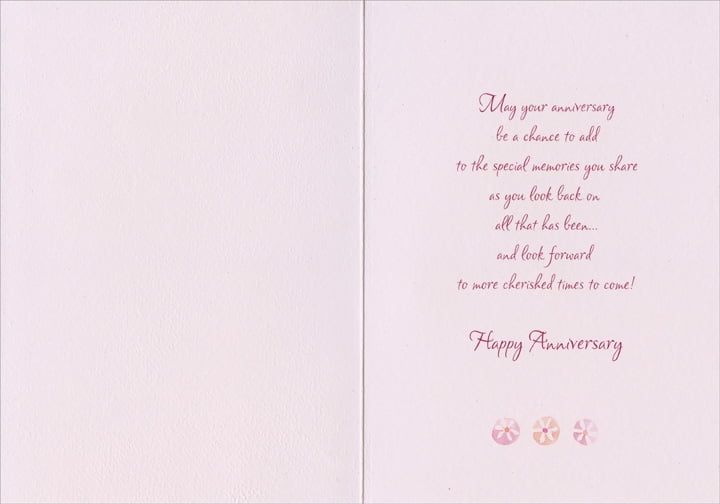 May your anniversary
be a chance to add
to the special memories you share
as you look back on
all that has been...
and look forward
to more cherished times to come!
Happy Anniversary